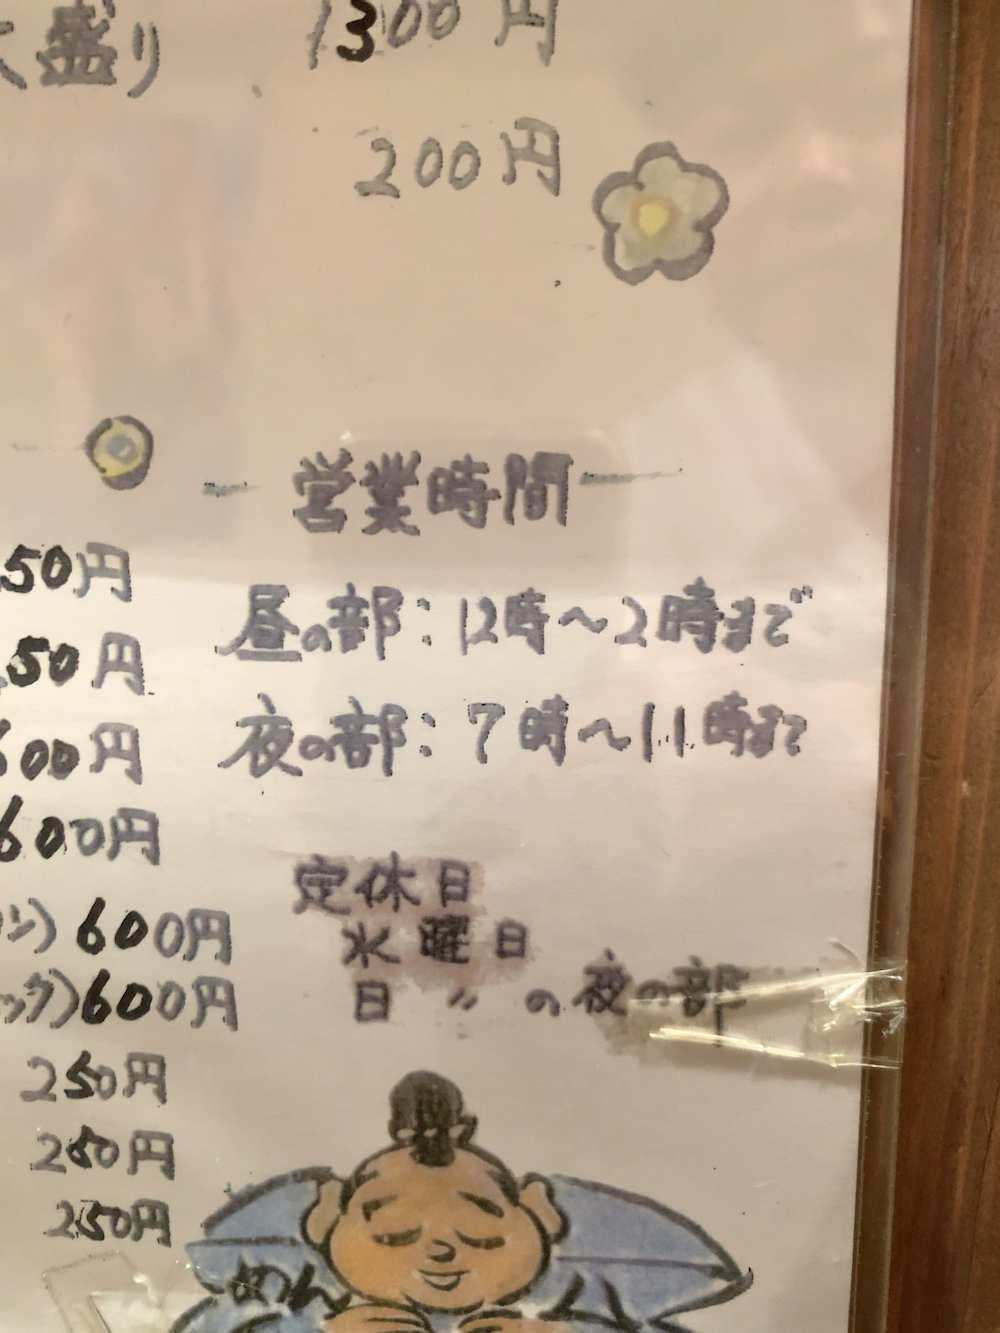 大盛り 1300円
200円
営業時間
昼の部:12時〜2時まで
夜の部:7時〜11時まで
定休日
水曜日
日〃の夜の部
50円
50円
600円
600円
ン)600円
ック)600円
250円
250円
250円
めん